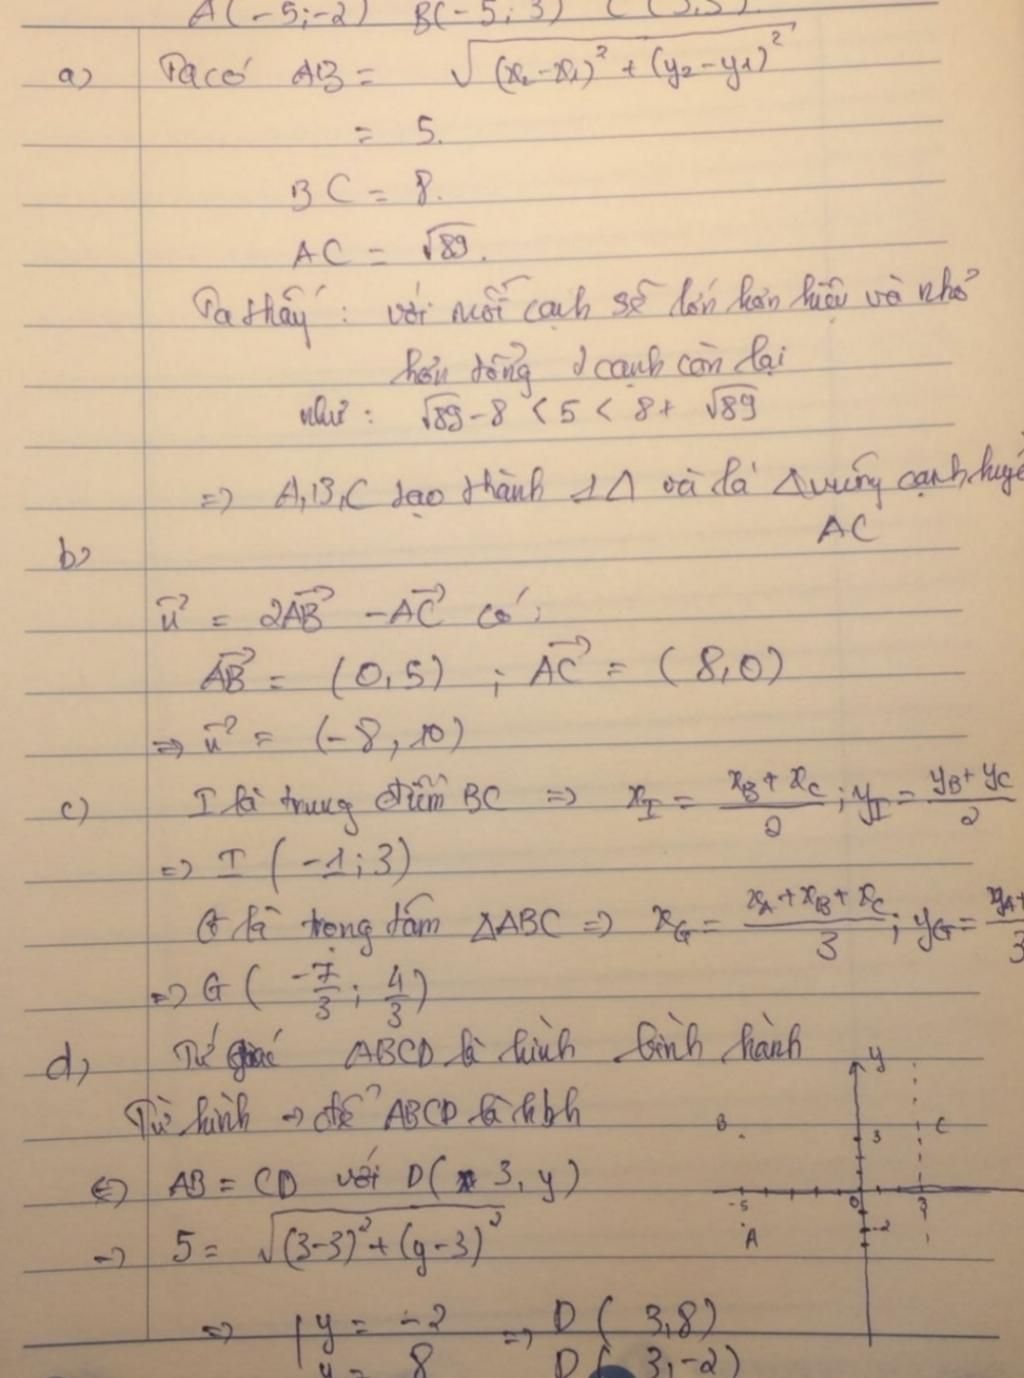 A(-5;-2) B(-5;3) C(3,3)
a) Ta có AB = √((x₂-x₁)² + (y₂-y₁)²)
= 5.
BC = 8.
AC = √89.
Ta thấy: với mỗi cạnh sẽ lớn hơn hiệu và nhỏ
hơn tổng 2 cạnh còn lại
như: √89 - 8 < 5 < 8 + √89
=> A,B,C tạo thành 1Δ và là Δ vuông cạnh huyề
AC
b)
u⃗ = 2AB⃗ - AC⃗ có:
AB⃗ = (0,5) ; AC⃗ = (8,0)
=> u⃗ = (-8, 10)
c) I là trung điểm BC => x_I = (x_B + x_C)/2 ; y_I = (y_B + y_C)/2
=> I (-1;3)
G là trọng tâm ΔABC => x_G = (x_A + x_B + x_C)/3 ; y_G = y_A+/3
=> G (-7/3 ; 4/3)
d) Tứ giác ABCD là hình bình hành
Từ hình → để ABCD là hbh
<=> AB = CD với D(3, y)
→ 5 = √((3-3)² + (y-3)²)
=> y = -2 => D (3,8)
y = 8 D (3,-2)
y
B 3 C
-5 0 3
A -2